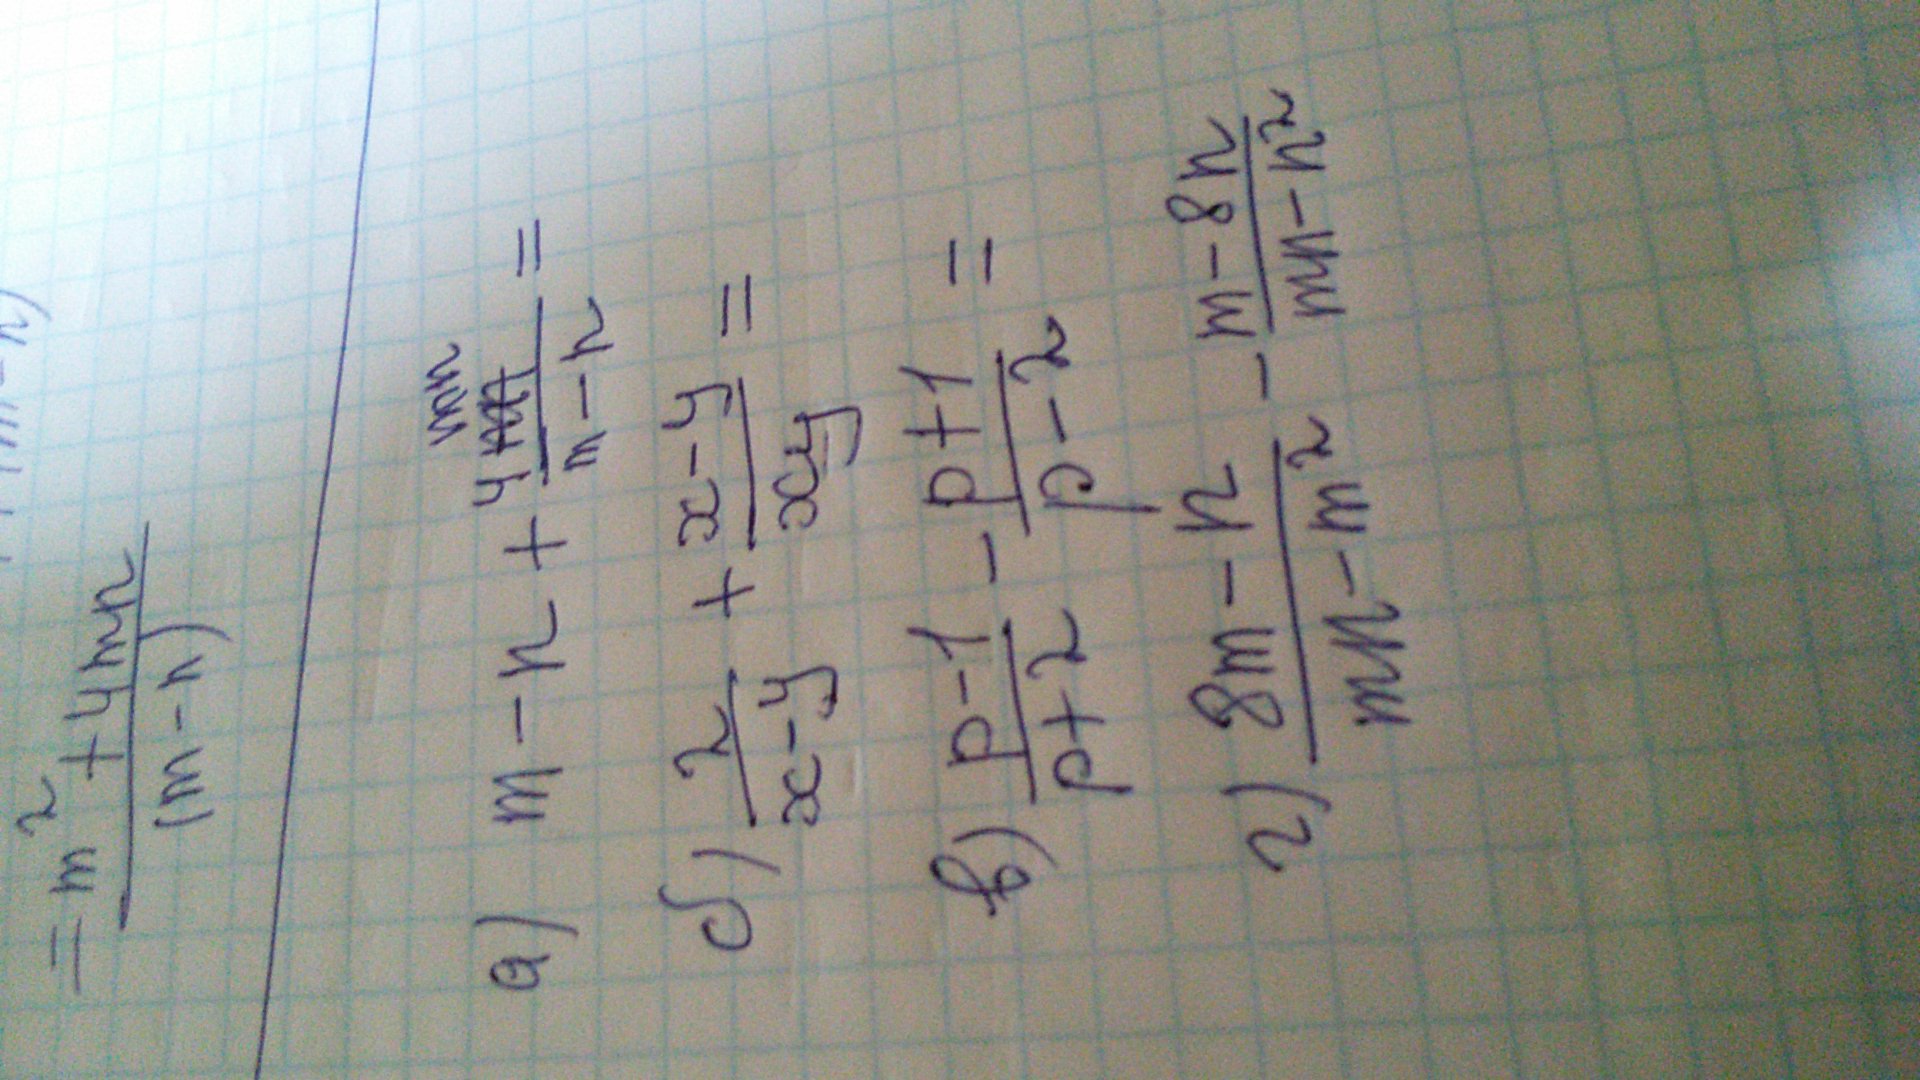 = (m² + 4mn)/((m - n))
а) m - n + 4mn/(m - n) =
б) 2/(x - y) + (x - y)/(xy) =
в) (p - 1)/(p + 2) - (p + 1)/(p - 2) =
г) (8m - n)/(mn - m²) - (m - 8n)/(mn - n²)